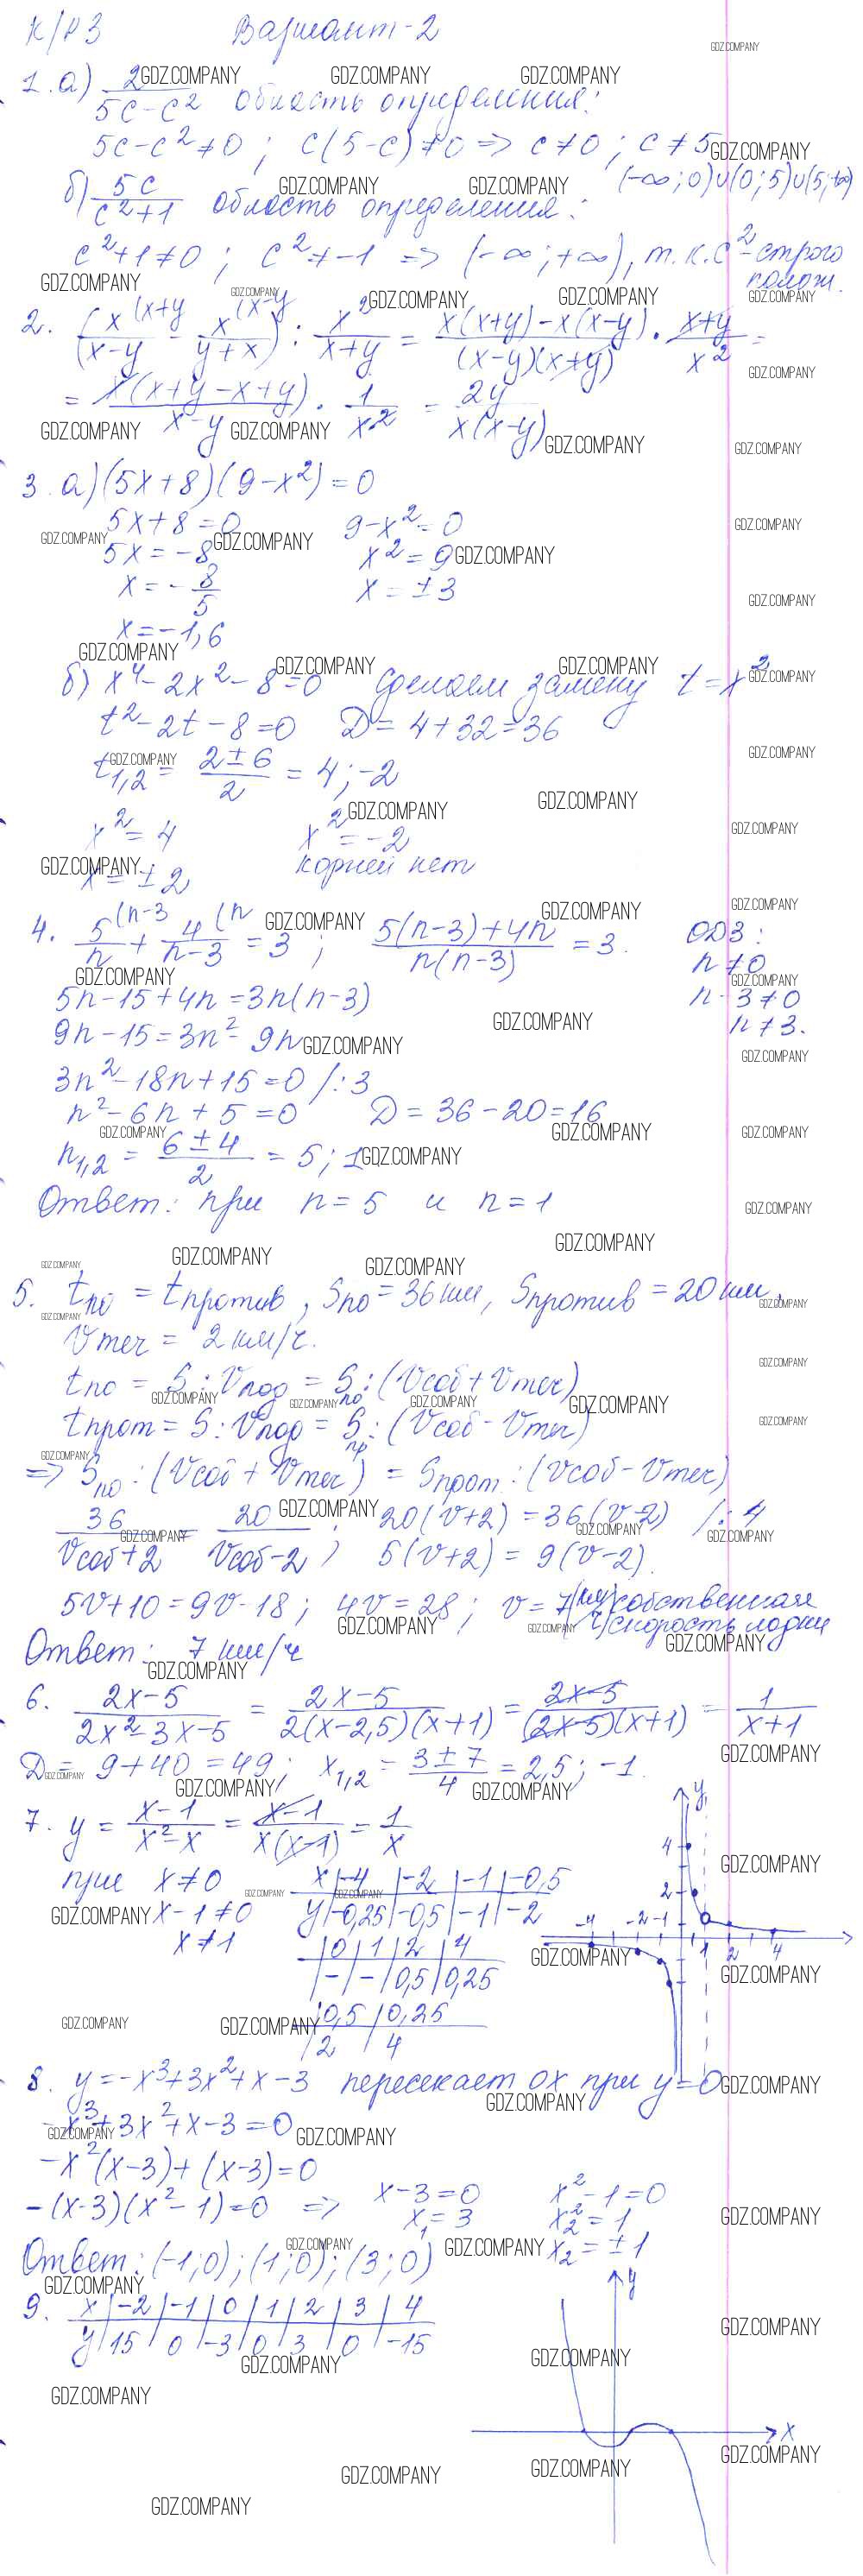 К/Р 3 Вариант-2
1. а) 2/(5c-c²) область определения:
5c-c²≠0; c(5-c)≠0 => c≠0; c≠5
(-∞;0)∪(0;5)∪(5;+∞)
б) 5c/(c²+1) область определения:
c²+1≠0; c²≠-1 => (-∞;+∞), т.к. c² - строго полож.
2. (x(x+y/(x-y) - x(x-y/(y+x)) : x²/(x+y) = (x(x+y)-x(x-y))/((x-y)(x+y)) · (x+y)/x² =
= x(x+y-x+y)/(x-y) · 1/x² = 2y/(x(x-y))
3. а) (5x+8)(9-x²)=0
5x+8=0 9-x²=0
5x=-8 x²=9
x=-8/5 x=±3
x=-1,6
б) x⁴-2x²-8=0 сделаем замену t=x²
t²-2t-8=0 D=4+32=36
t1,2 = (2±6)/2 = 4;-2
x²=4 x²=-2
x=±2 корней нет
4. 5(n-3/n + 4(n/(n-3) = 3; (5(n-3)+4n)/(n(n-3)) = 3. ОДЗ:
n≠0
5n-15+4n=3n(n-3) n-3≠0
9n-15=3n²-9n n≠3.
3n²-18n+15=0 /:3
n²-6n+5=0 D=36-20=16
n1,2 = (6±4)/2 = 5; 1
Ответ: при n=5 и n=1
5. tпо = tпротив, Sпо=36км, Sпротив=20км,
Vтеч = 2км/ч.
tпо = Sпо : Vлод = Sпо : (Vсоб+Vтеч)
tпрот = S : Vлод = Sпр : (Vсоб-Vтеч)
=> Sпо : (Vсоб+Vтеч) = Sпрот : (Vсоб-Vтеч)
36/(Vсоб+2) = 20/(Vсоб-2); 20(v+2)=36(v-2) /:4
5(v+2)=9(v-2).
5v+10=9v-18; 4v=28; v=7(км/ч) собственная скорость лодки
Ответ: 7 км/ч
6. (2x-5)/(2x²-3x-5) = (2x-5)/(2(x-2,5)(x+1)) = (2x-5)/((2x-5)(x+1)) = 1/(x+1)
D=9+40=49; x1,2 = (3±7)/4 = 2,5; -1.
7. y = (x-1)/(x²-x) = (x-1)/(x(x-1)) = 1/x
при x≠0
x-1≠0
x≠1
x|-4|-2|-1|-0,5
y|-0,25|-0,5|-1|-2
|0|1|2|4
|-|-|0,5|0,25
|0,5|0,25
|2|4
y
4
2
-4 -2 -1 1 2 4
8. y=-x³+3x²+x-3 пересекает OX при y=0
-x³+3x²+x-3=0
-x²(x-3)+(x-3)=0
-(x-3)(x²-1)=0 => x-3=0 x²-1=0
x₁=3 x₂²=1
x₂=±1
Ответ: (-1;0); (1;0); (3;0)
9. x|-2|-1|0|1|2|3|4
y|15|0|-3|0|3|0|-15
y
x
GDZ.COMPANY